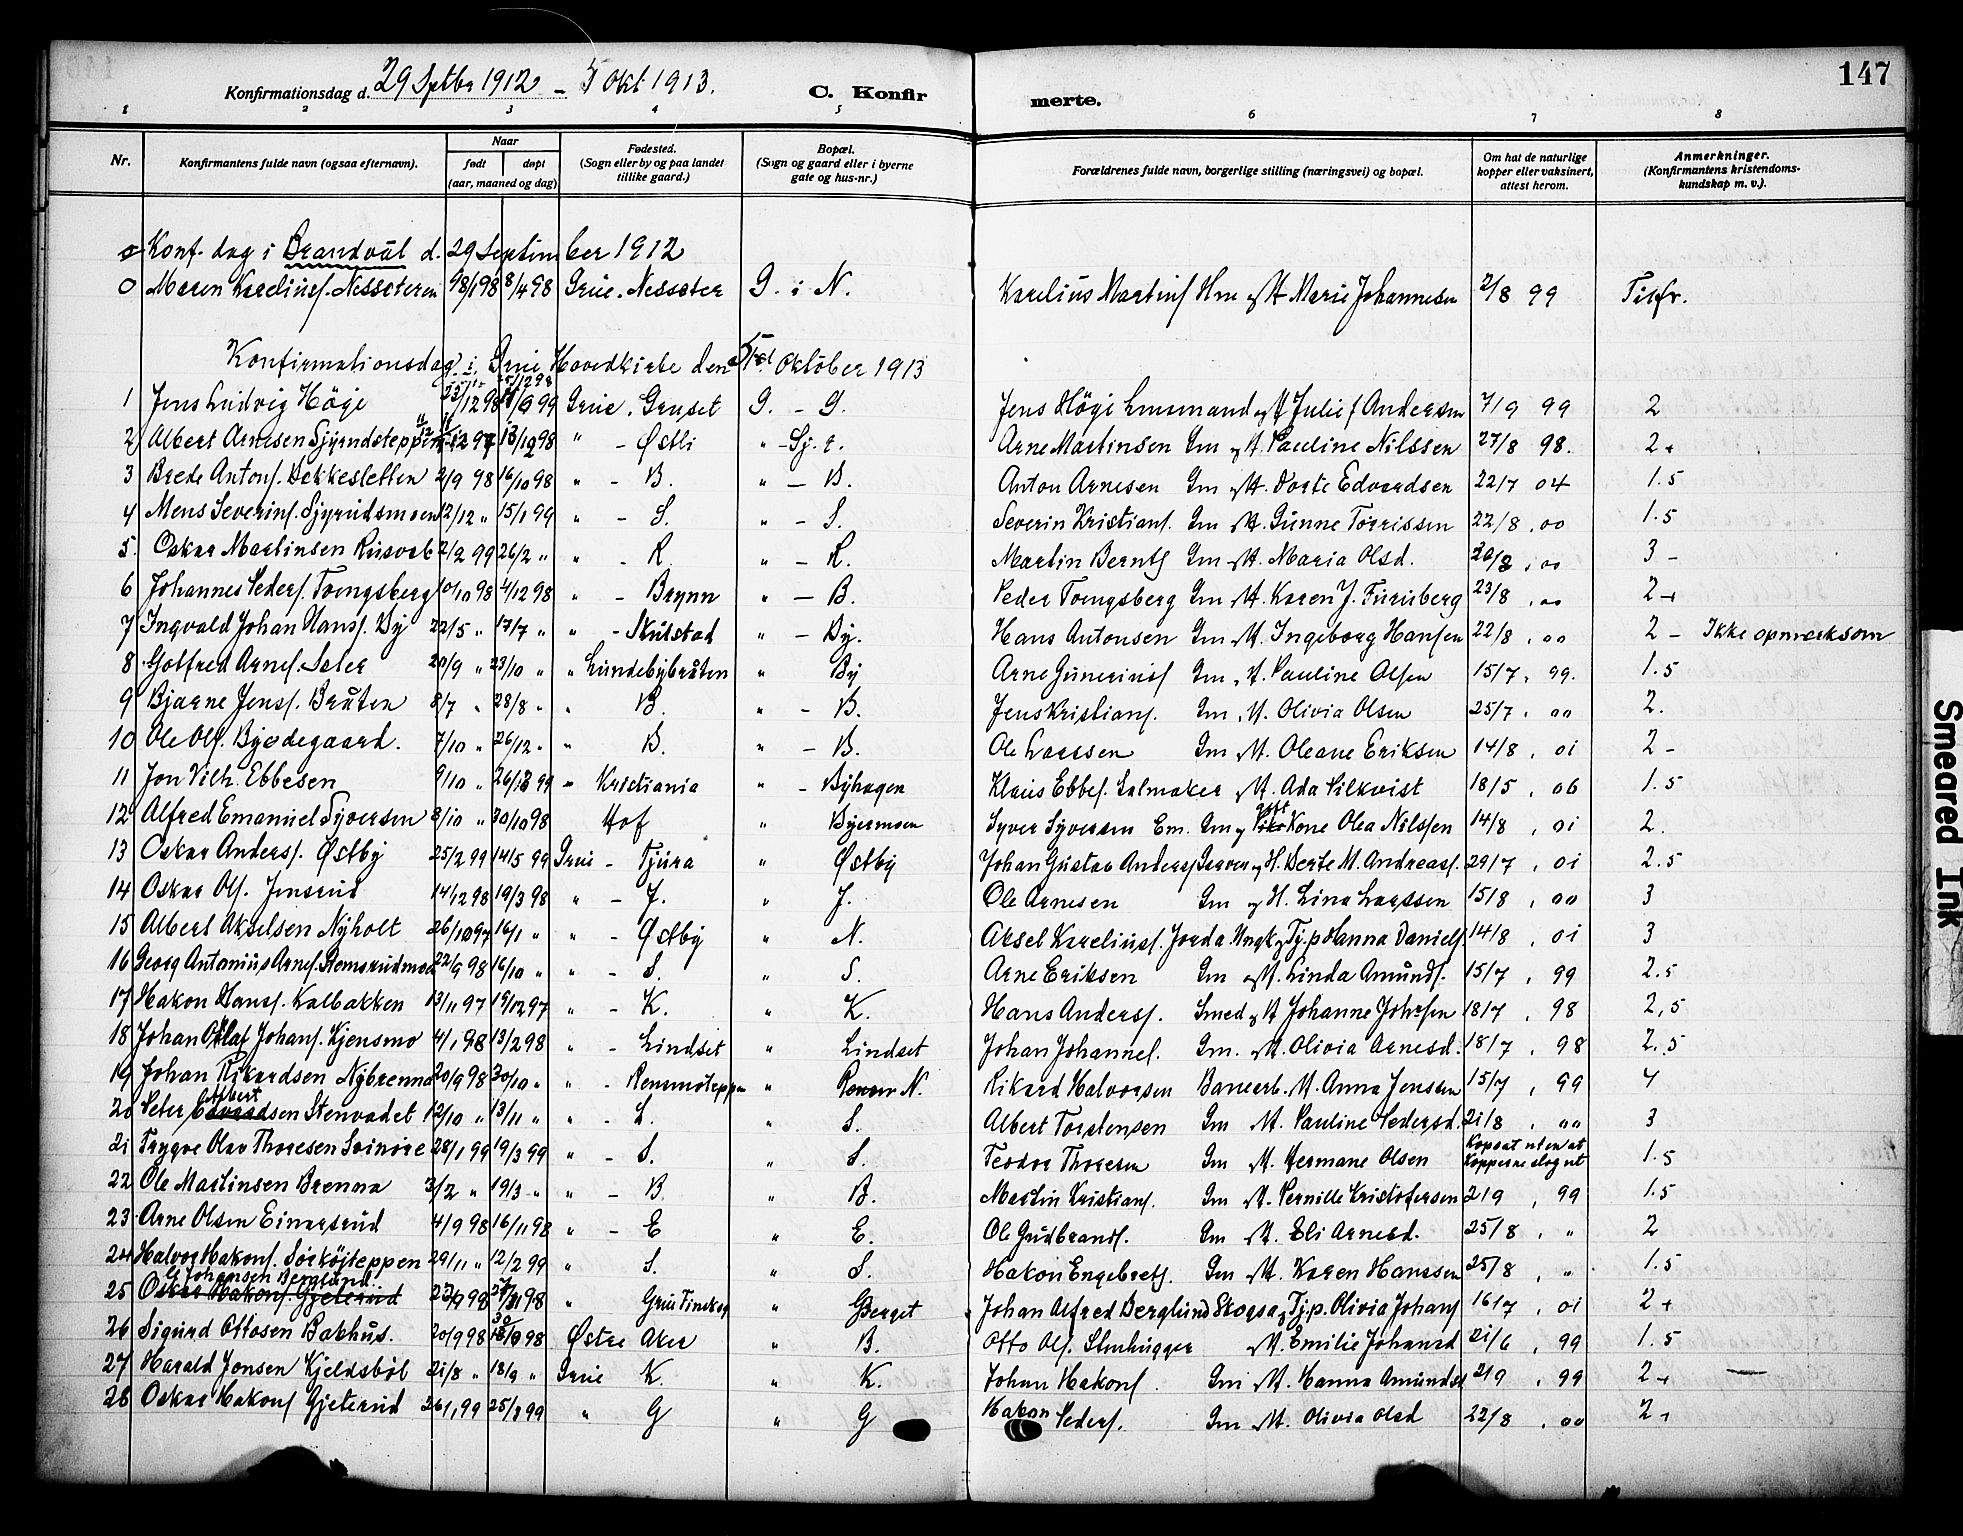 147
Konfirmationsdag d. 29 Septbr 1912 – 5 Okt 1913. C. Konfir merte.
1 2 3 4 5 6 7 8
Nr. Konfirmantens fulde navn (ogsaa efternavn). Naar født døpt (aar, maaned og dag) Fødested. (Sogn eller by og paa landet tillike gaard.) Bopæl. (Sogn og gaard eller i byerne gate og hus-nr.) Forældrenes fulde navn, borgerlige stilling (næringsvei) og bopæl. Om hat de naturlige kopper eller vaksinert, attest herom. Anmerkninger. (Konfirmantens kristendoms-kundskap m. v.).
Konf. dag i Brandval d. 29 September 1912
0 Maren Kareliusf. Nessæteren 8/4 98 Grue. Nessæter G. i N. Karelius Martinsf Hm og H Marie Johannesen 2/8 99 Tilfr.
Konfirmationsdag i Grue Hovedkirke den 5te Oktober 1913
1 Jens Ludvig Högi Grue. Gruset G. – G. Jens Högi Lensmand og H Julie f Andersen 7/9 99 2
2 Albert Arnesen " – Østli " – Arne Martinsen Gm og H. Pauline Nilssen 27/8 98. 2+
3 Brede Antonf. Bekkesletten 2/9 98 16/10 98 " – B. " – B. Anton Arnesen Gm og H. Dorte Edvardsen 22/7 04 1.5
4 Mens Severinf. Sjyrudsmoen 12/12 " 15/1 99 " – S. " – S. Severin Kristianf. Gm og H. Gunne Torrissen 22/8 . 00 1.5
5. Oskar Martinsen 2/2 99 26/2 " " – R. " – R. Martin Berntf Gm og H. Maria Olsd. . 00 3 –
6 Johannes Pedersf. Tvengsberg 10/10 98 4/12 98 " – Brynn " – B. Peder Tvengsberg Gm og H. Karen J. Furuberg 23/8 . 00 2+
7 Ingvald Johan Hansf. By 22/5 " 17/7 " " – Skulstad " – By. Hans Antonsen Gm og H. Ingeborg Hansen 22/8 . 00 2 – Ikke opmerksom
8 Gotfred Arnef. Sæter 20/9 " 23/10 " " Lundebybråten " By Arne Gunerius Gm og H. Pauline Olsen 15/7 . 99. 1.5
9 Bjarne Jensf. Bråten 8/7 " 28/8 " " B. " – B. Jens Kristianf. Gm . H. Olivia Olsen 25/7 . 00 2.
10 Ole Olf. Byedegaard. 7/10 " 26/12 " " B. " – B. Ole Larssen Gm og H. Oleane Eriksen 14/8 . 01 2 –
11 Jon Vilh. Ebbesen 9/10 " " Kristiania " – Byhagen Klaus Ebbef. Salmaker og H. Ada Silkvist 18/5 . 06 1.5
12 Alfred Emanuel Syversen 8/10 " 30/10 98 Hof " Byermoen Syver Syversen Em. Gm og Kone Olea Nilssen 14/8 . 01 2.
13 Oskar Andersf. Østby 25/2 99 14/5 99 Grue – Tjura " Østby Johan Gustav Andersf og H. Berte M. Andreasf. 29/7 . 01 2.5
14 Oskar Olf. Jensrud 14/12 98 19/3 98 " – J. " J. Ole Arnesen Gm og H. Lina Larssen 15/8 . 00 3
15 Albert Akselsen Nyholt 26/10 97 16/1 " " – Østby " N. Aksel Kareliusf. Jorda. Ungk og Tj.p Hanna Danielf. 14/8 . 01 3
16 Georg Antonius Arnef. 22/9 98 16/10 " " – S. " S. Arne Eriksen Gm og H. Linda Amundf. 15/7 . 99 2.5
17 Hakon Hansf. Kalbakken 13/11 97 19/12 97 " – K. " K. Hans Andersf. Smed og H Johanne Johnsen 18/7 . 98 2,5
18 Johan Olaf Johanf. Kjensmo 4/1 98 13/2 98 " – Lindset " Lindset Johan Johannef. Gm. H. Olivia Arnesd. 18/7 . 98 2.5
19 Johan Rikardsen Nybrenna 20/9 98 30/10 " " – Rensmoteppen " N. Rikard Halvorsen Banearb. H. Anna Jenssen 15/7 . 99 4
20 Peter Albert sen Stenvadet 12/10 " 13/11 " " – S. " S. Albert Torstensen Gm H. Pauline Pedersd. 21/8 . " 3
21 Trygve Olav Thoresen 28/1 99 19/3 99 " – S. " S. Teodor Thoresen Gm H. Hermane Olsen Kopsat uten at kopperne slog ut 1.5
22 Ole Martinsen Brenna 3/2 " 19/3 " " – B. " B. Martin Kristianf. Gm H. Pernille Kristofersen 2/9 . 99 1.5
23 Arne Olsen Einarsrud 4/9 98 16/11 98 " – E " E. Ole Gudbrandf. Gm H. Eli Arnesd. 25/8 . " 2
24 Halvor Hakonf. Sörköjteppen 29/11 " 12/2 99 " S. " S. Hakon Engebretf. Gm H. Karen Hanssen 25/8 . " 1.5
25 G Johansen Berglund. " Grue Finskog " Berget Johan Alfred Berglund Skogsa. og Tj.p. Olivia Johanf 16/7 . 01 2+
26 Sigurd Ottosen Bakhus. 20/9 98 Østre Aker " B. Otto Olf. Stenhugger H. Emilie Johansd 21/6 . 99 1.5
27 Harald Jonsen Kjeldsböl 21/8 " 18/9 " Grue K. " K. Johan Hakonf. Gm H. Hanna Amundsd 2/9 . 99 2+ —
28 Oskar Hakonf Gjeterud 26/1 99 25/3 99 " G " G Hakon Pedersf. Gm H. Olivia Olsd 22/8 . 00 2+
Smeared Ink